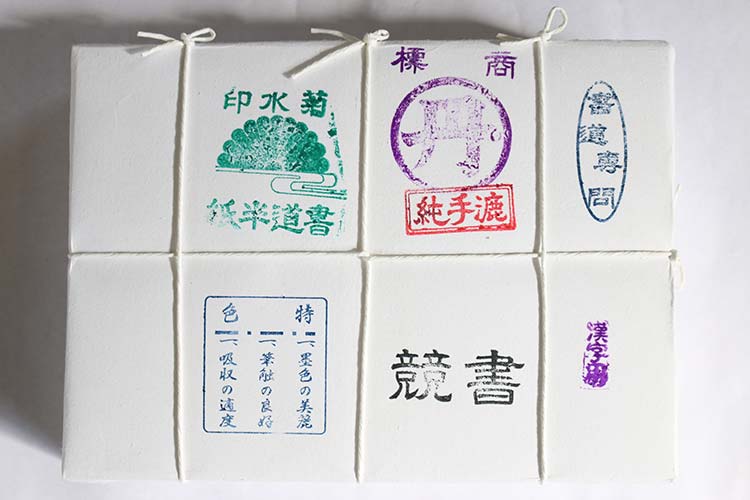 商標
純手漉
菊水印
書道半紙
書道専門
特色
一、墨色の美麗
一、筆触の良好
一、吸収の適度
競書
漢字用